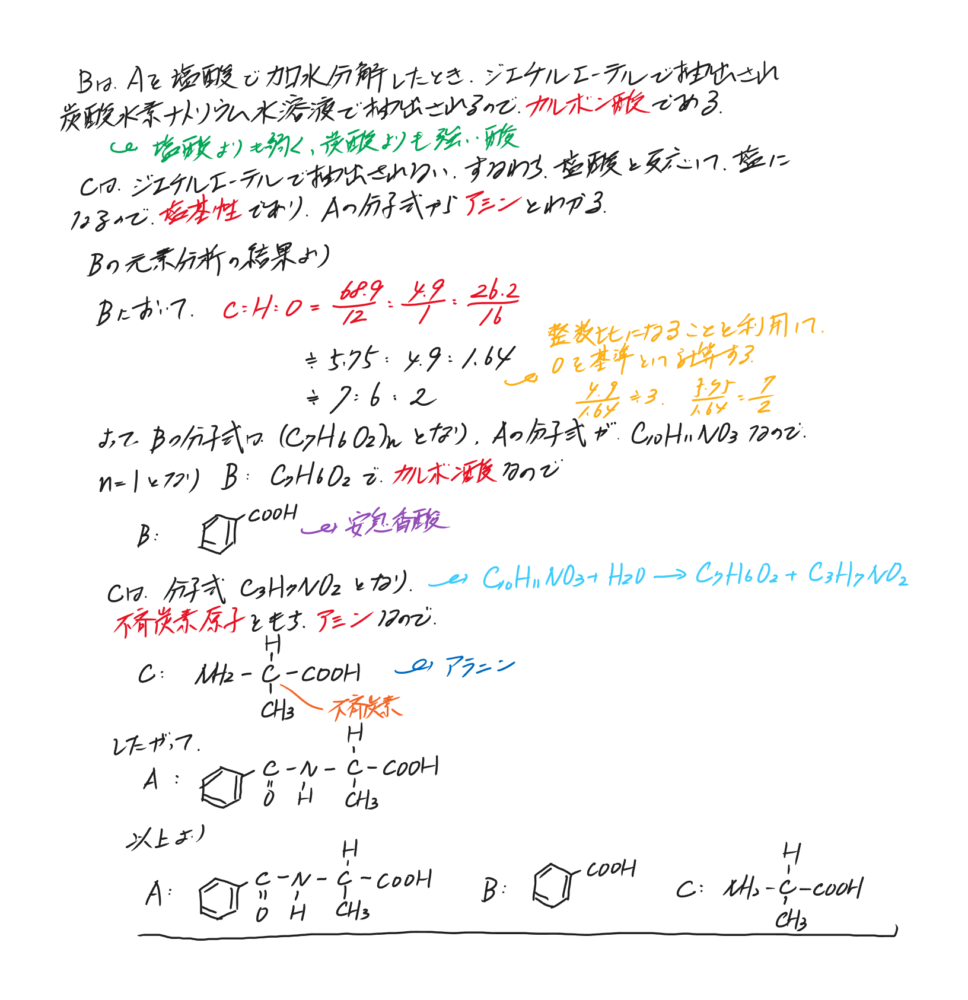 Bは、Aを塩酸で加水分解したとき、ジエチルエーテルで抽出され
炭酸水素ナトリウム水溶液で抽出されるので、カルボン酸である。
塩酸よりも弱く、炭酸よりも強い酸
Cは、ジエチルエーテルで抽出されない、すなわち、塩酸と反応して、塩に
なるので、塩基性であり、Aの分子式からアミンとわかる。
Bの元素分析の結果より
Bにおいて、 C:H:O = 68.9/12 : 4.9/1 : 26.2/16
≒ 5.75 : 4.9 : 1.64
≒ 7 : 6 : 2
整数比になることを利用して、
Oを基準として計算する
4.9/1.64 ≒ 3、 5.75/1.64 = 7/2
よって、Bの分子式は、(C7H6O2)n となり、Aの分子式が、C10H11NO3 なので、
n=1となり B: C7H6O2 で、カルボン酸なので
B: COOH 安息香酸
Cは、分子式 C3H7NO2 となり、 C10H11NO3 + H2O → C7H6O2 + C3H7NO2
不斉炭素原子をもち、アミンなので、
H
C: NH2 - C - COOH アラニン
CH3 不斉炭素
したがって、
H
A: C - N - C - COOH
O H CH3
以上より
H H
A: C - N - C - COOH B: COOH C: NH2 - C - COOH
O H CH3 CH3